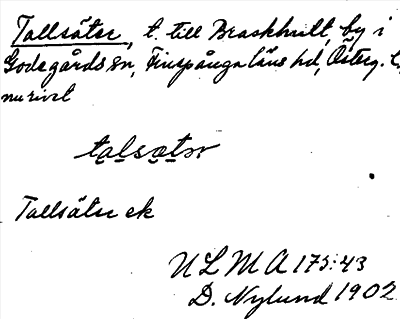 Tallsäter, t. till Braskhult, by i
Godegårds sn, Finspånga läns hd, Österg. l.,
nu rivet
talsatər
Tallsäter ek
ULMA 175:43
D. Nylund 1902